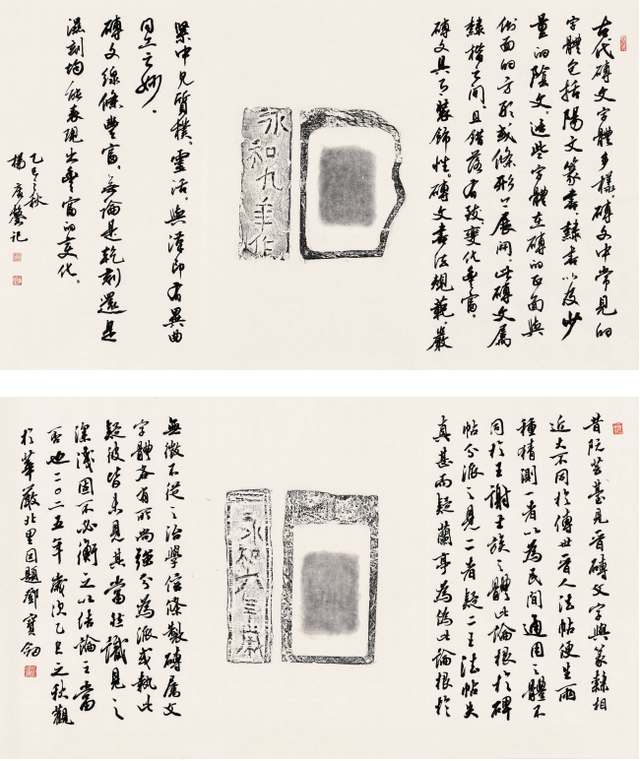 古代磚文字體多樣磚文中常見的
字體包括陽文篆書、隸書以及少
量的陰文。這些字體在磚的正面與
側面的方形或條形上展開。此磚文屬
隸楷之間，且錯落有致，變化豐富。
磚文具有裝飾性。磚文書法規範、嚴
永和九年作
梁中見質樸、靈活。與漢印有異曲
同工之妙。
磚文線條豐富，無論是乾刻還是
濕刻均能表現出豐富的變化。
乙巳之秋
楊 記
昔阮芸臺見晉磚文字與篆隸相
近大不同於傳世晉人法帖便生兩
種猜測一者以為民間通用之體不
同於王謝士族之體此論根於碑
帖分派之見二者疑二王法帖失
真甚而疑蘭亭為偽此論根於
永和六年歲
無徵不從之治學信條製磚屬文
字體各有所尚強分為派或執此
疑彼皆未見其當然識見之
深淺固不必衡之以結論之當
否也二〇二五年歲次乙巳之秋觀
於華嚴北里因題鄧寶劍